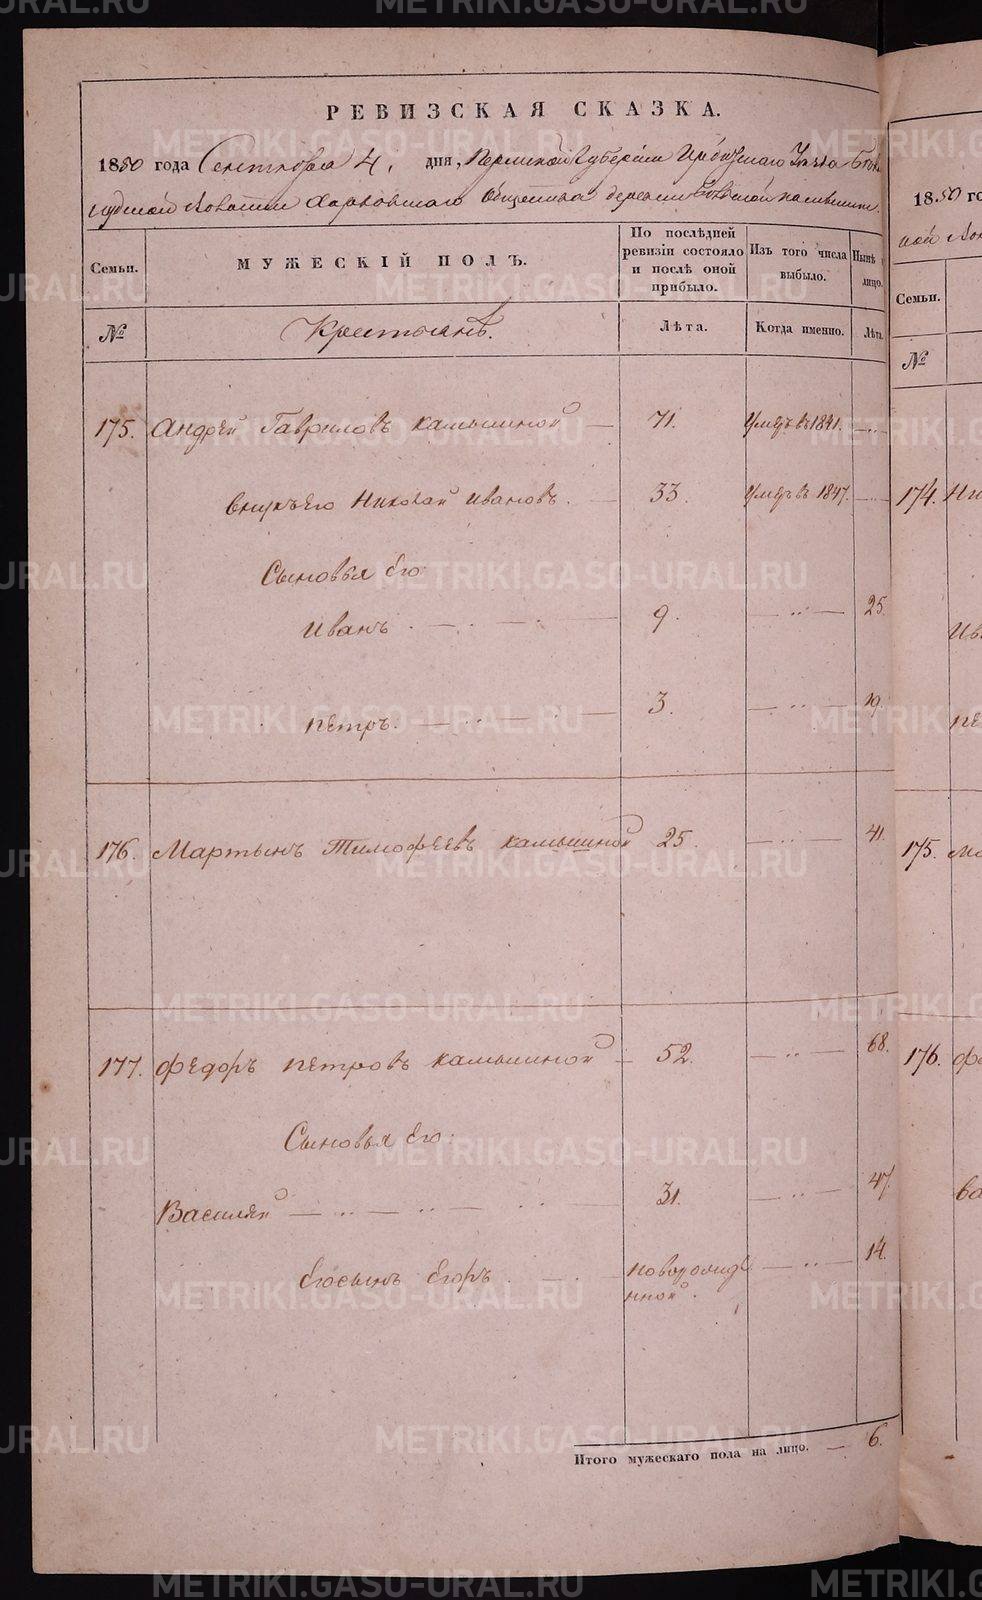 РЕВИЗСКАЯ СКАЗКА.
1850 года Сентября 4. дня, Пермской Губернии Ирбитскаго Уезда
волости Харловскаго Общества деревни
Семьи. МУЖЕСКІЙ ПОЛЪ. По послѣдней ревизіи состояло и послѣ оной прибыло. Изъ того числа выбыло. Нынѣ лицо.
№ Крестьянъ. Лѣта. Когда именно. Лѣта.
175. Андрей Гавриловъ Камышиной — 71. Умеръ въ 1841. — .. —
внукъ Его Николай Ивановъ. — 33. Умеръ въ 1847. — .. —
Сыновья Его
Иванъ 9. — .. — 25.
Петръ. 3. — .. — 19.
176. Мартынъ Тимофеевъ Камышиной 25. — .. — 41.
177. Федоръ Петровъ Камышиной — 52. — .. — 68.
Сыновья Его:
Василий 31. — .. — 47.
Его сынъ Егоръ новорожде — .. — 14.
нной.
Итого мужескаго пола на лицо. — 6.
1850 го
Семьи.
№
174. Ни
Ив
Пе
175. Ма
176. Фе
Ва
METRIKI.GASO-URAL.RU